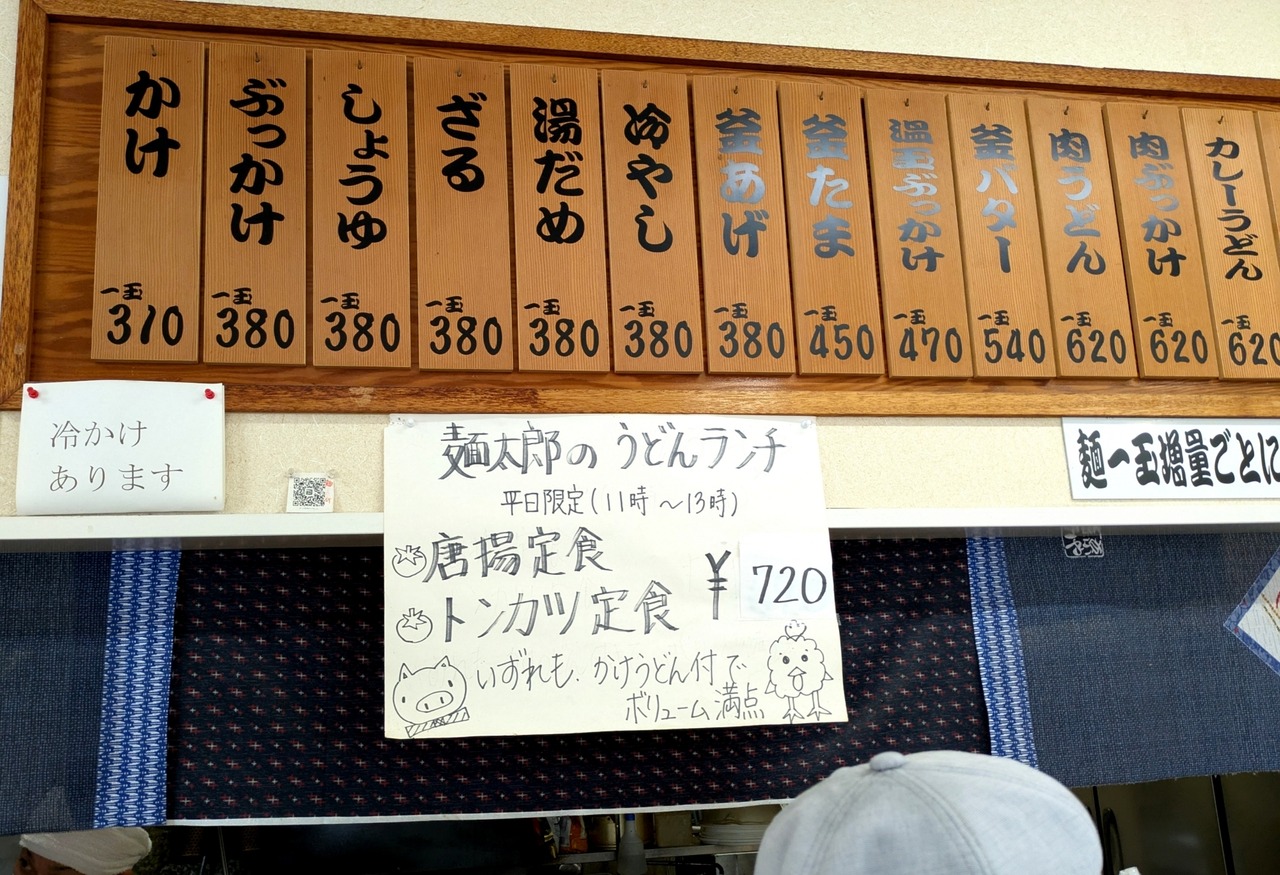 かけ
一玉
310
ぶっかけ
一玉
380
しょうゆ
一玉
380
ざる
一玉
380
湯だめ
一玉
380
冷やし
一玉
380
釜あげ
一玉
380
釜たま
一玉
450
温玉ぶっかけ
一玉
470
釜バター
一玉
540
肉うどん
一玉
620
肉ぶっかけ
一玉
620
カレーうどん
一玉
620
冷かけ
あります
麺太郎の うどんランチ
平日限定(11時 〜13時)
唐揚定食
トンカツ定食
¥ 720
いずれも、かけうどん付で
ボリューム満点
麺一玉増量ごとに